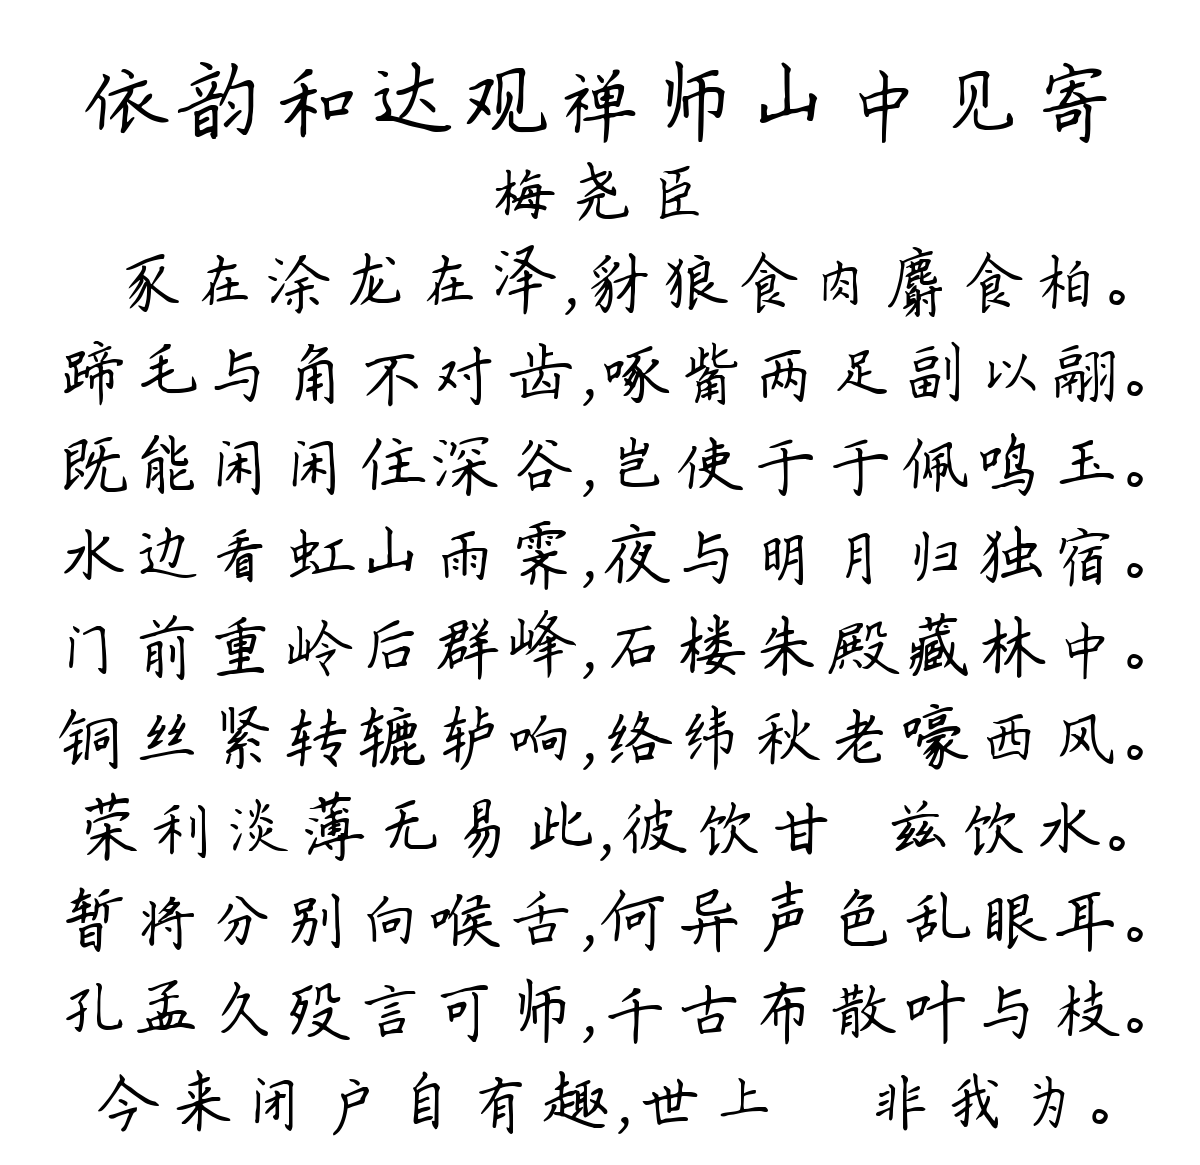 依韵和达观禅师山中见寄
梅尧臣
豕在涂龙在泽,豺狼食肉麝食柏。
蹄毛与角不对齿,啄觜两足副以翮。
既能闲闲住深谷,岂使于于佩鸣玉。
水边看虹山雨霁,夜与明月归独宿。
门前重岭后群峰,石楼朱殿藏林中。
铜丝紧转辘轳响,络纬秋老嚎西风。
荣利淡薄无易此,彼饮甘 兹饮水。
暂将分别向喉舌,何异声色乱眼耳。
孔孟久殁言可师,千古布散叶与枝。
今来闭户自有趣,世上 非我为。